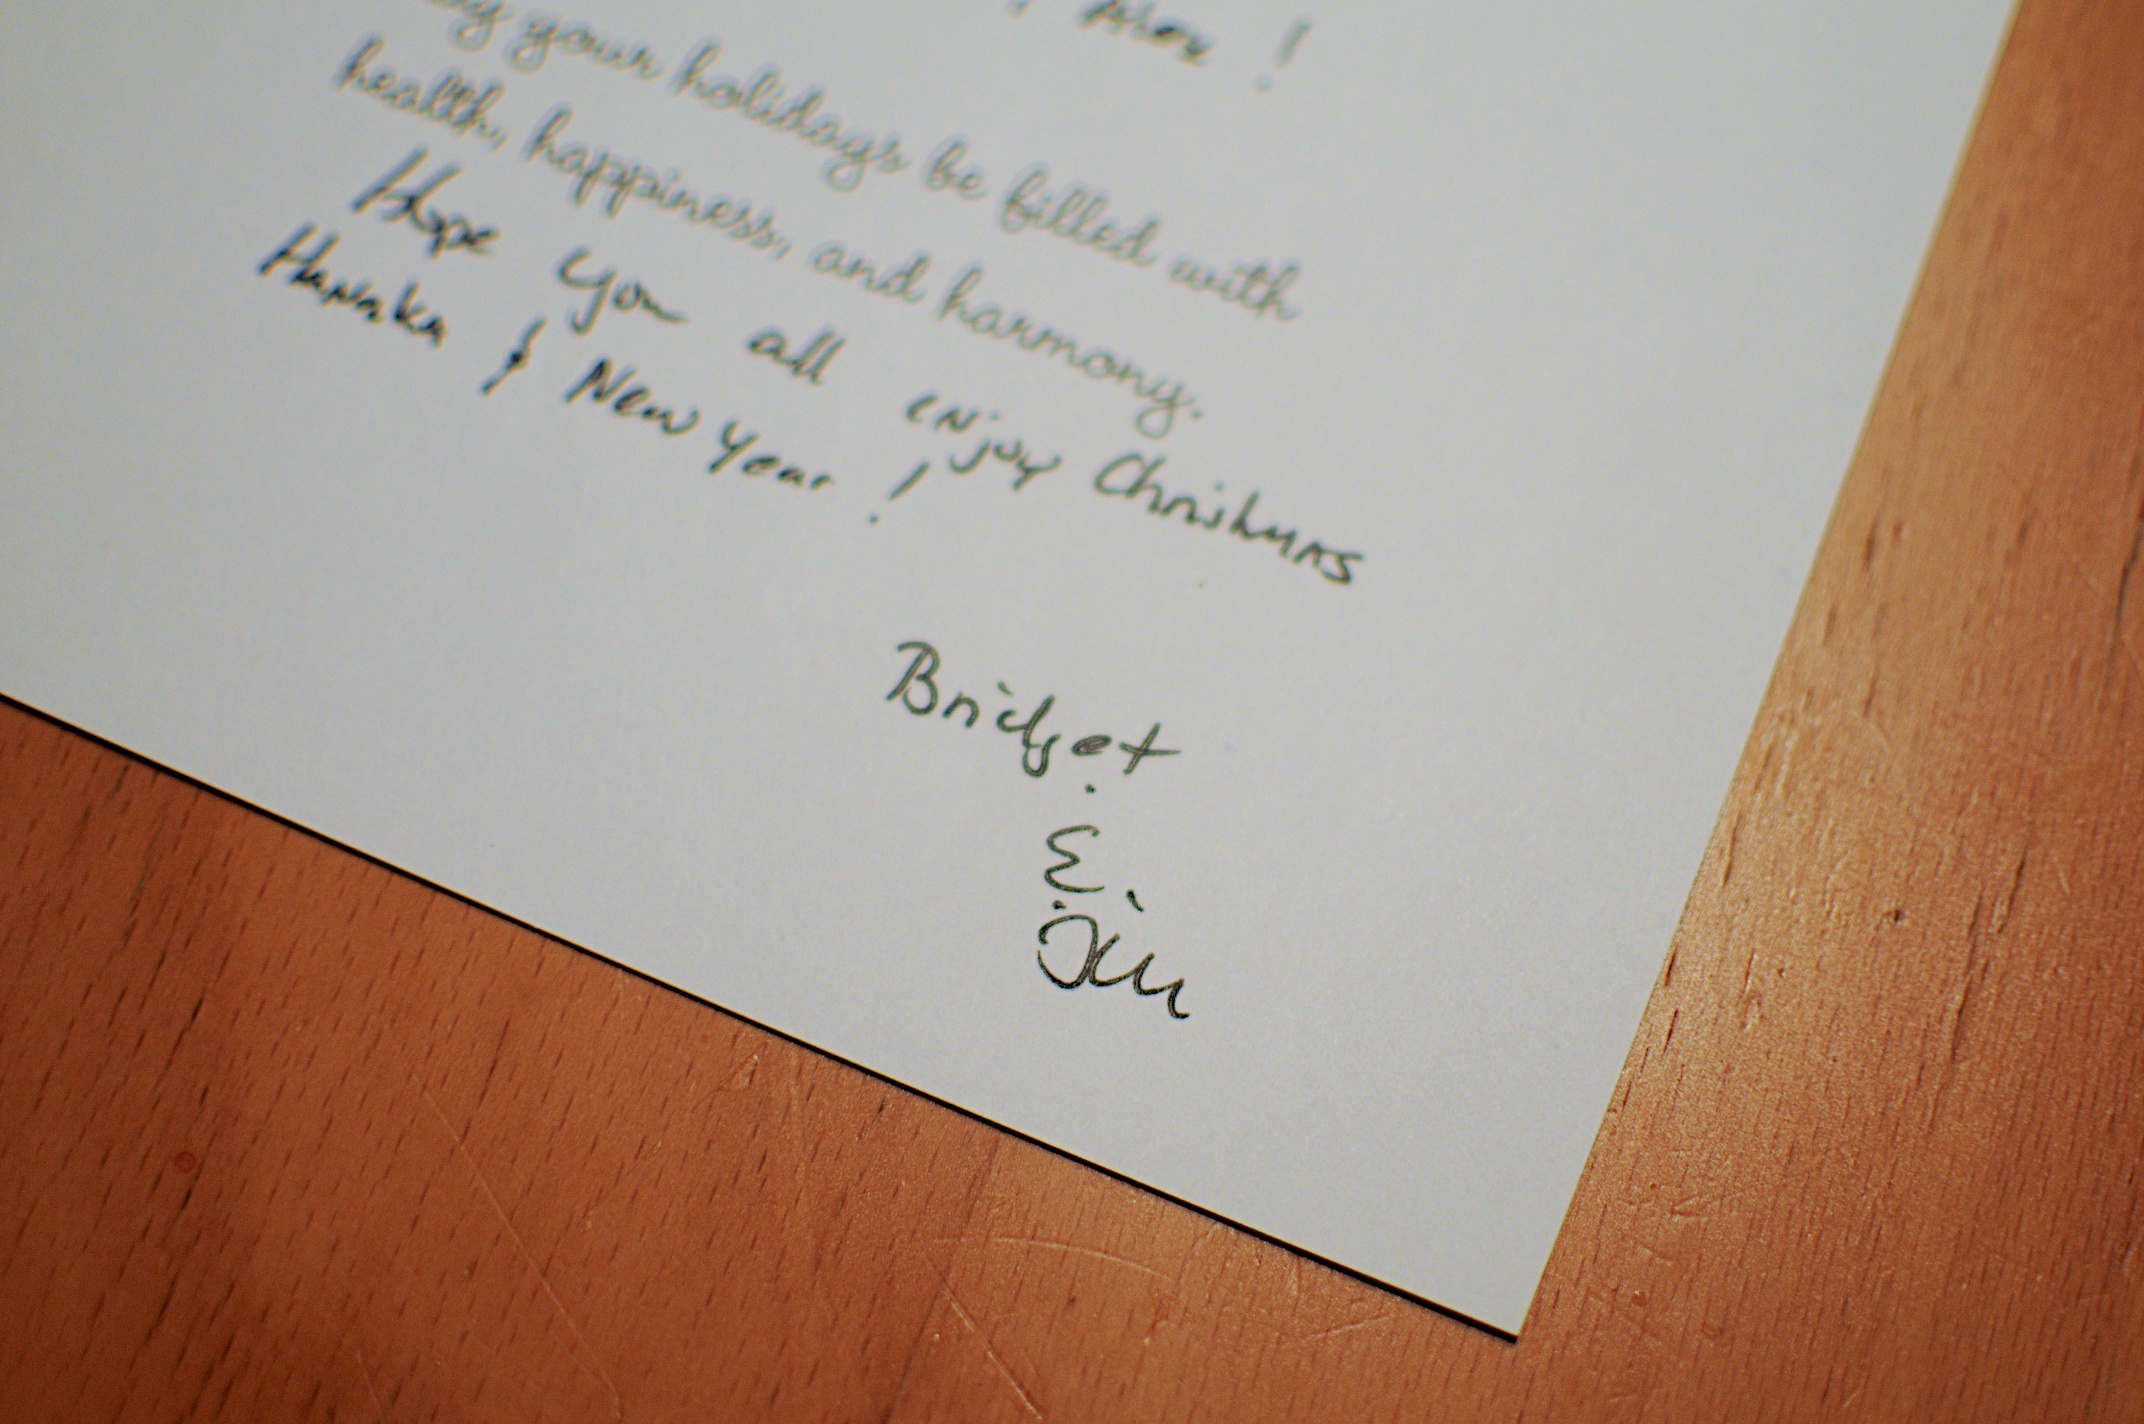 , Alex !
ay your holidays be filled with
health, happiness, and harmony.
Hope you all enjoy Christmas
Hanaka & New Year !
Bridget
&
Jim